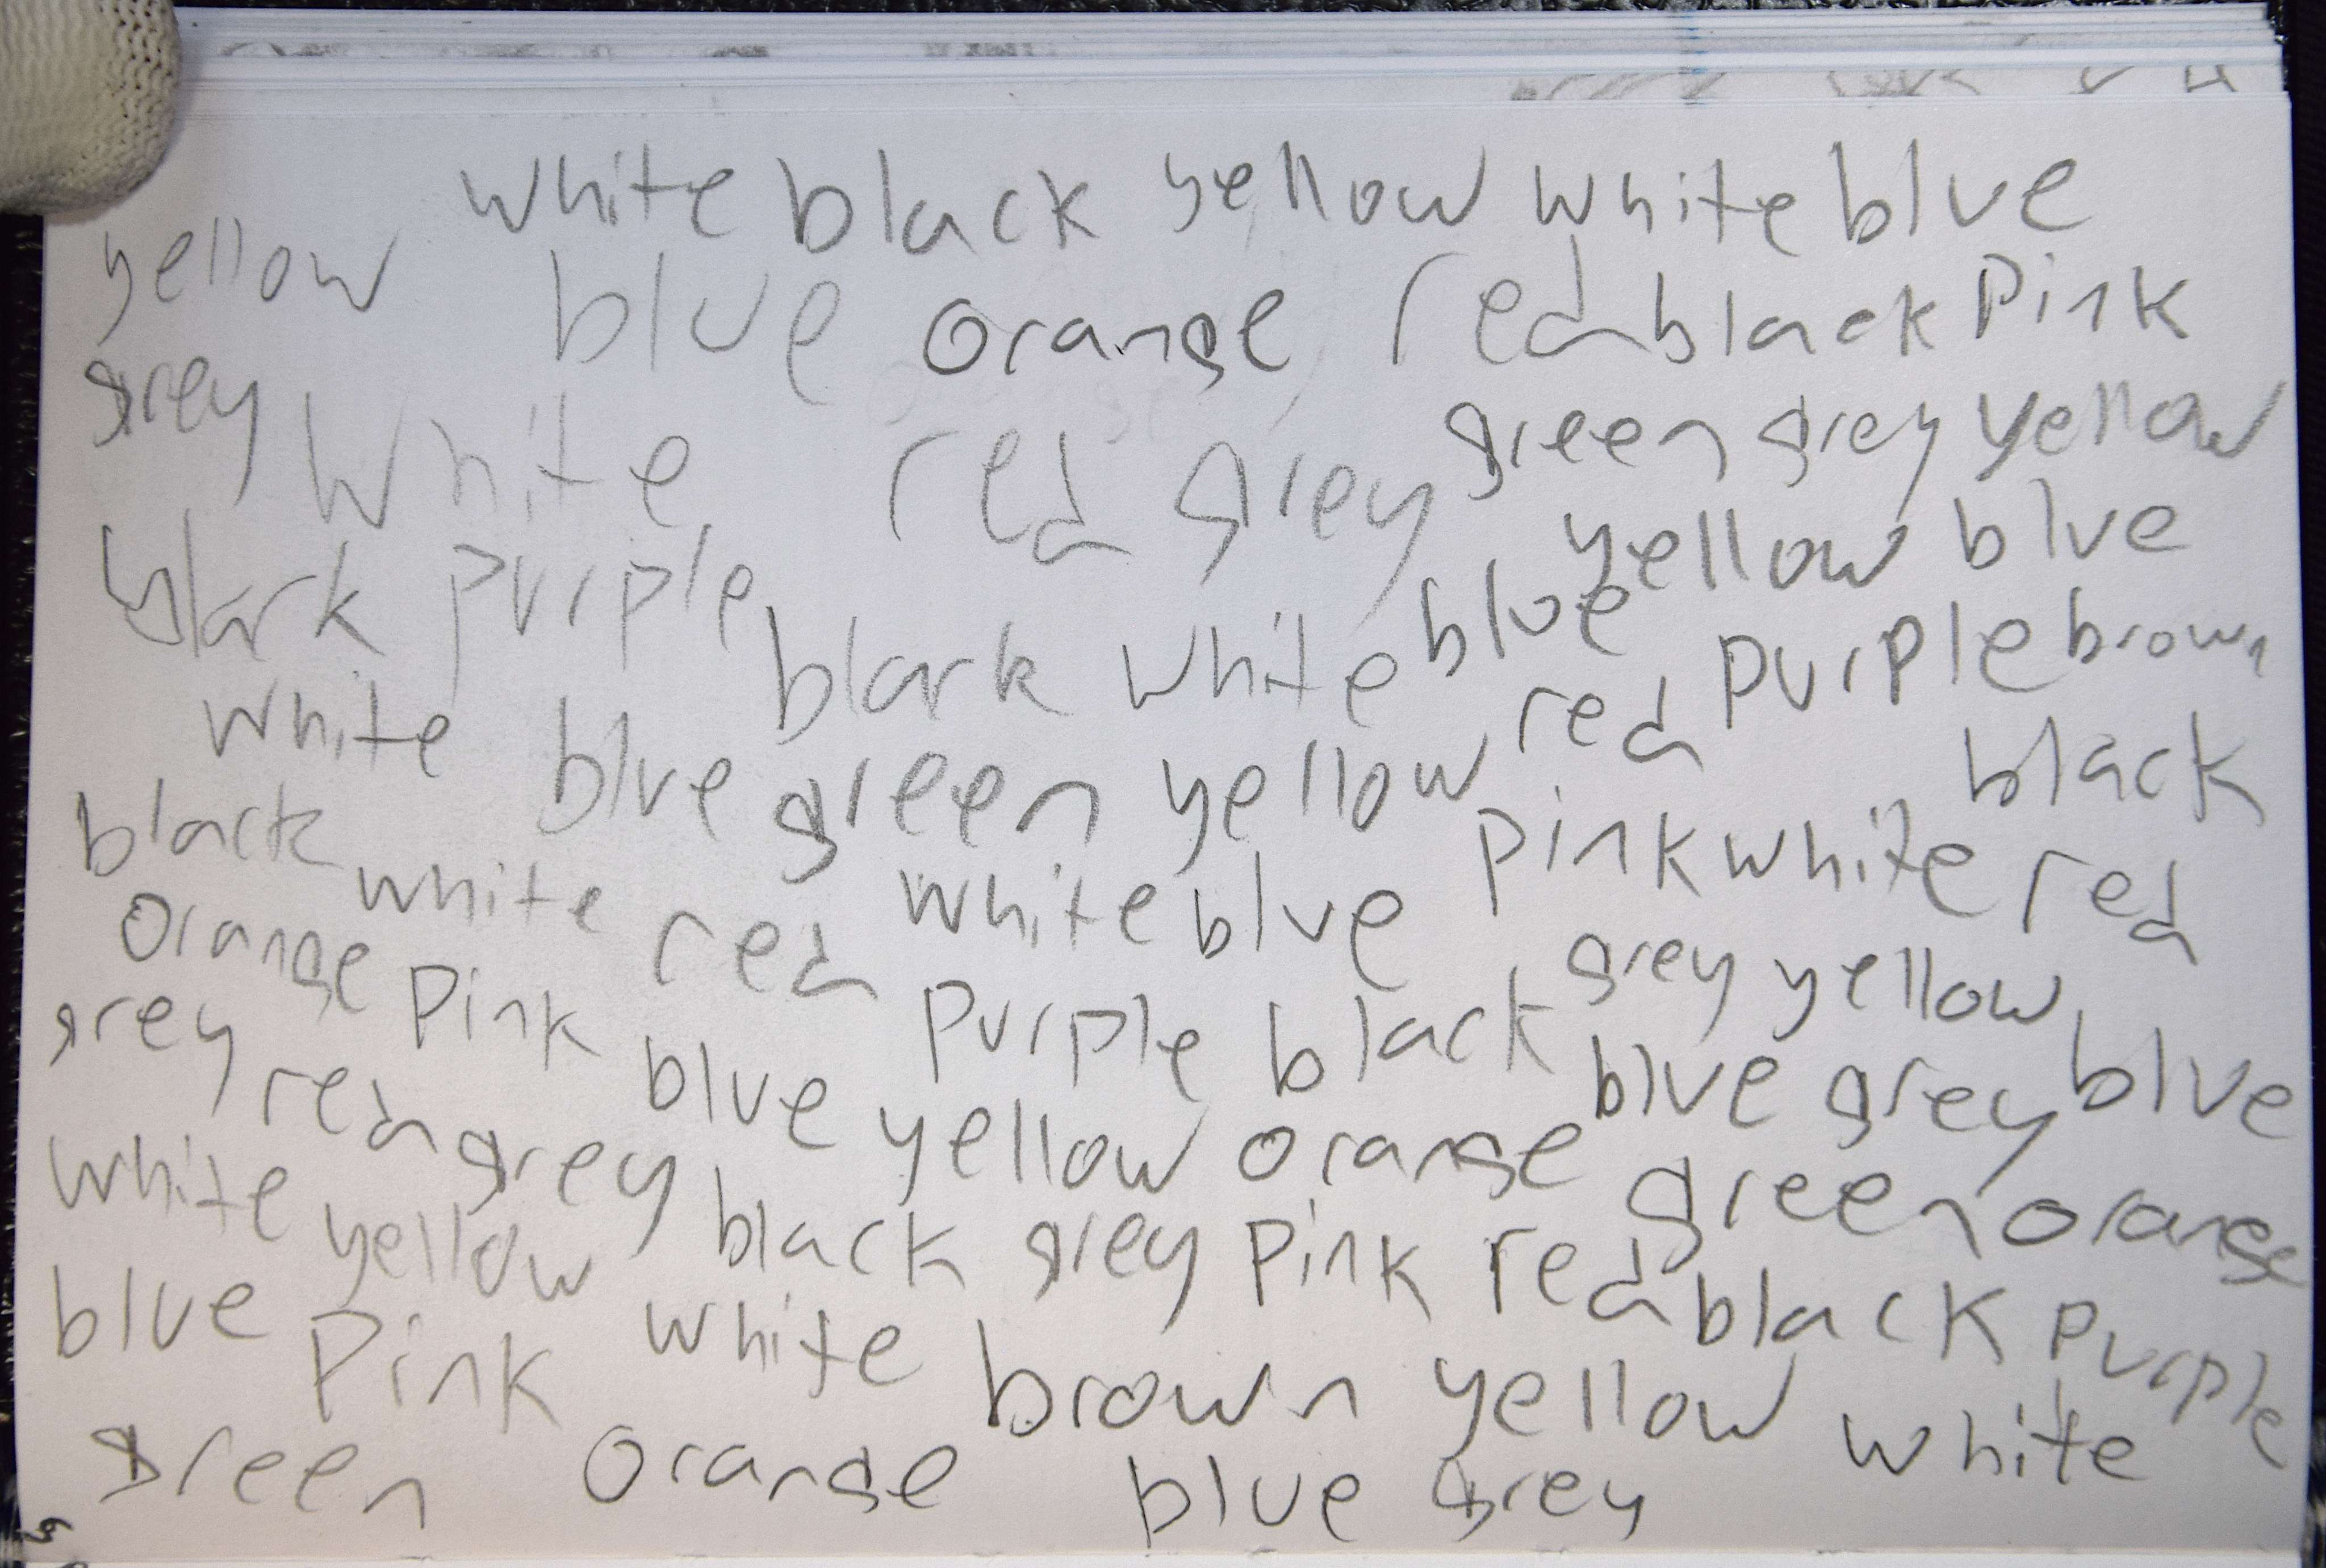 white black yellow white blue
yellow blue orange red black pink
grey white red grey green grey yellow
black purple black white blue yellow blue
white blue green yellow red purple brown
black white red white blue pink white red black
orange pink blue purple black grey yellow
grey red grey yellow orange blue grey blue
white yellow black grey pink red green orange
blue pink white brown yellow black purple
green orange blue grey white